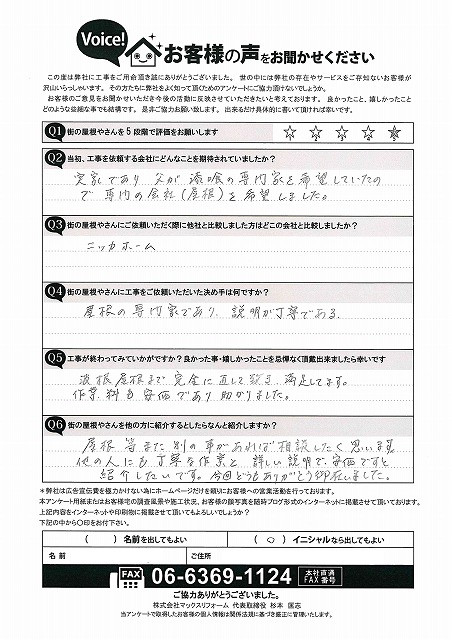 Voice!
お客様の声をお聞かせください
この度は弊社に工事をご用命頂き誠にありがとうございました。世の中には弊社の存在やサービスをご存知ないお客様が
沢山いらっしゃいます。その方たちに弊社をよく知って頂くためのアンケートにご協力頂けないでしょうか。
お客様のご意見をお聞かせいただき今後の活動に反映させていただきたいと考えております。良かったこと、嬉しかったこと
どのような些細な事でも結構です。是非ご協力お願い致します。出来るだけ具体的に書いて頂ければ幸いです。
Q1 街の屋根やさんを5段階で評価をお願いします
Q2 当初、工事を依頼する会社にどんなことを期待されていましたか？
実家であり 父が漆喰の専門家を希望していたの
で専門の会社(屋根)を希望しました。
Q3 街の屋根やさんにご依頼いただく際に他社と比較しました方はどこの会社と比較しましたか？
ニッカホーム
Q4 街の屋根やさんに工事をご依頼いただいた決め手は何ですか？
屋根の専門家であり、説明が丁寧である。
Q5 工事が終わってみていかがですか？良かった事・嬉しかったことを忌憚なく頂戴出来ましたら幸いです
波板屋根まで完全に直して頂き、満足してます。
作業料も安価であり助かりました。
Q6 街の屋根やさんを他の方に紹介するとしたらなんと紹介しますか？
屋根等また別の事があれば相談したく思います。
他の人にも丁寧な作業と詳しい説明で、安価ですと
紹介したいです。今回どうもありがとう御座いました。
＊弊社は広告宣伝費を極力かけない為にホームページだけを頼りにお客様への営業活動を行っております。
本アンケート用紙またはお客様宅の調査風景や施工状況、お客様の顔写真を随時ブログ形式のインターネットに掲載させて頂いております。
上記内容をインターネットや印刷物に掲載させて頂いてもよろしいでしょうか？
下記の中から〇印をお付下さい。
（　　）名前を出してもよい
（ 〇 ）イニシャルなら出してもよい
名前
ご住所
FAX 06-6369-1124 本社直通 FAX番号
ご協力ありがとうございました。
株式会社マックスリフォーム 代表取締役 杉本 匡志
当アンケートで取得したお客様の個人情報は関係法規に基づき厳正に管理いたします。